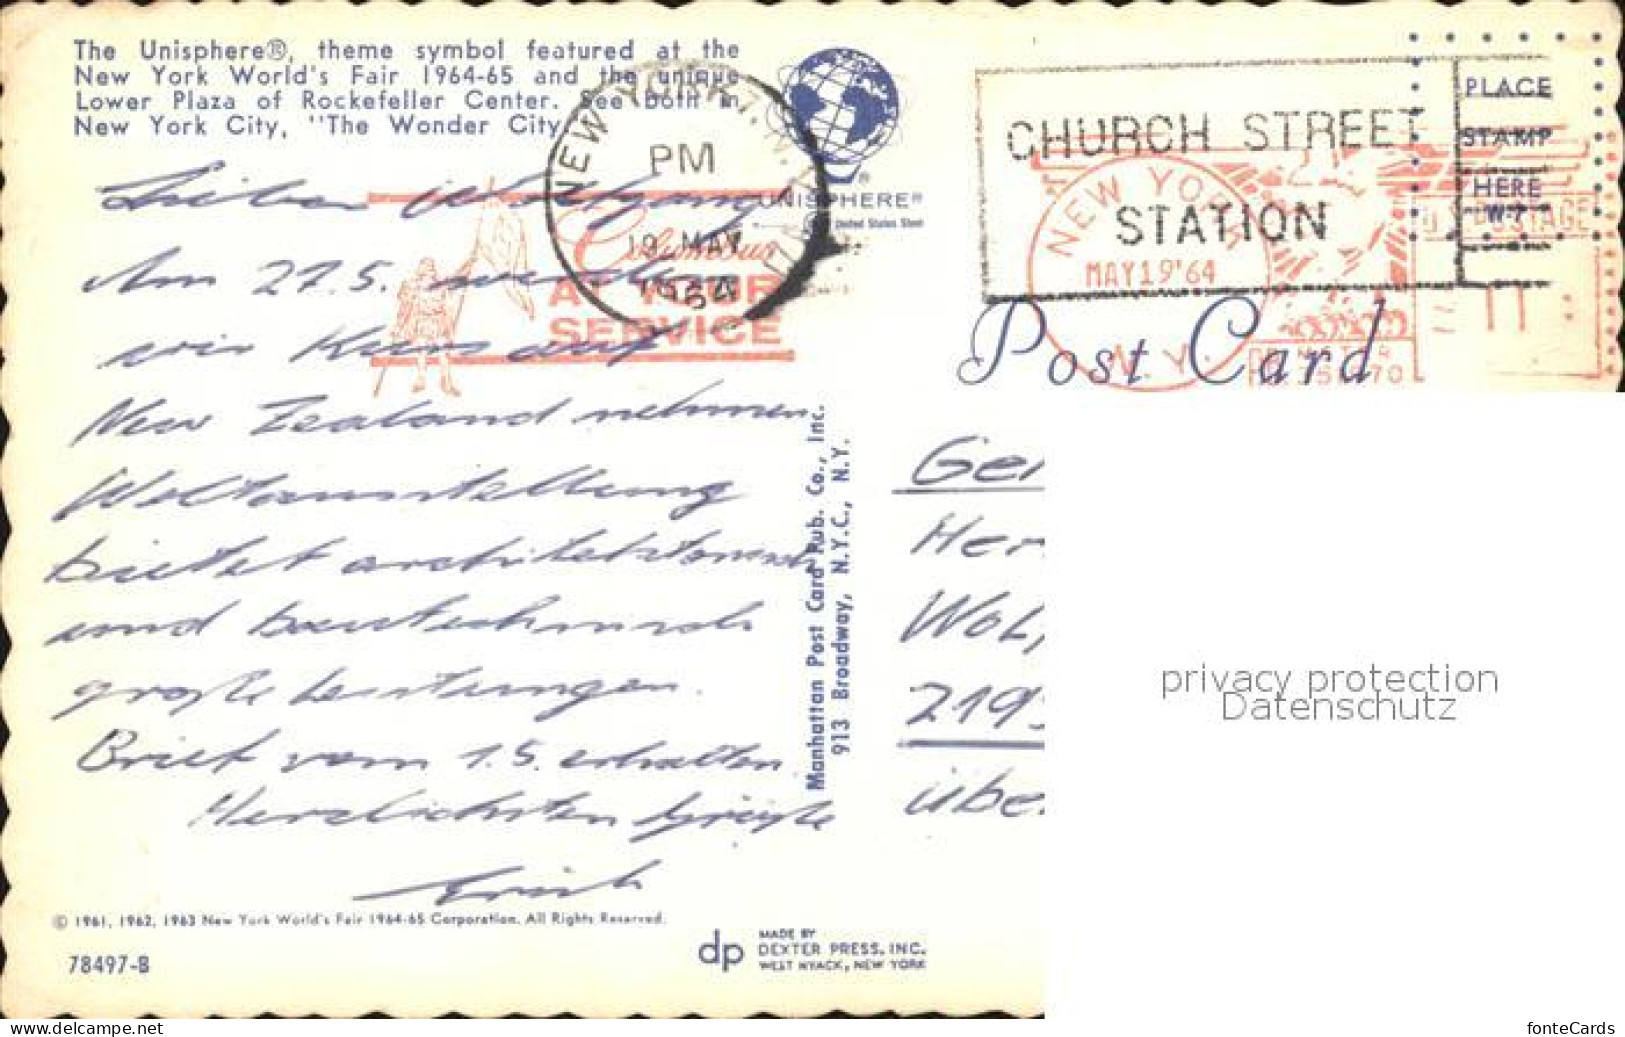 The Unisphere®, theme symbol featured at the
New York World's Fair 1964-65 and the unique
Lower Plaza of Rockefeller Center. See both in
New York City, "The Wonder City."
UNISPHERE®
United States Steel
NEW YORK, N.Y.
PM
19 MAY
1964
CHURCH STREET
STATION
PLACE
STAMP
HERE
W-7
NEW YORK
MAY 19 '64
N.Y.
U.S. POSTAGE
11
Columbus
AT YOUR
SERVICE
Post Card
Lieber Wolfgang
Am 27.5. werden
wir Kurs auf
New Zealand nehmen.
Weltausstellung
bietet architektonisch
und bautechnisch
große Leistungen.
Brief vom 1.5. erhalten.
Herzlichsten Grüße
Erich
Manhattan Post Card Pub. Co., Inc.
913 Broadway, N.Y.C., N.Y.
Ger
Her
Wol
219
übe
privacy protection
Datenschutz
© 1961, 1962, 1963 New York World's Fair 1964-65 Corporation. All Rights Reserved.
78497-B
dp
MADE BY
DEXTER PRESS, INC.
WEST NYACK, NEW YORK
www.delcampe.net
fonteCards